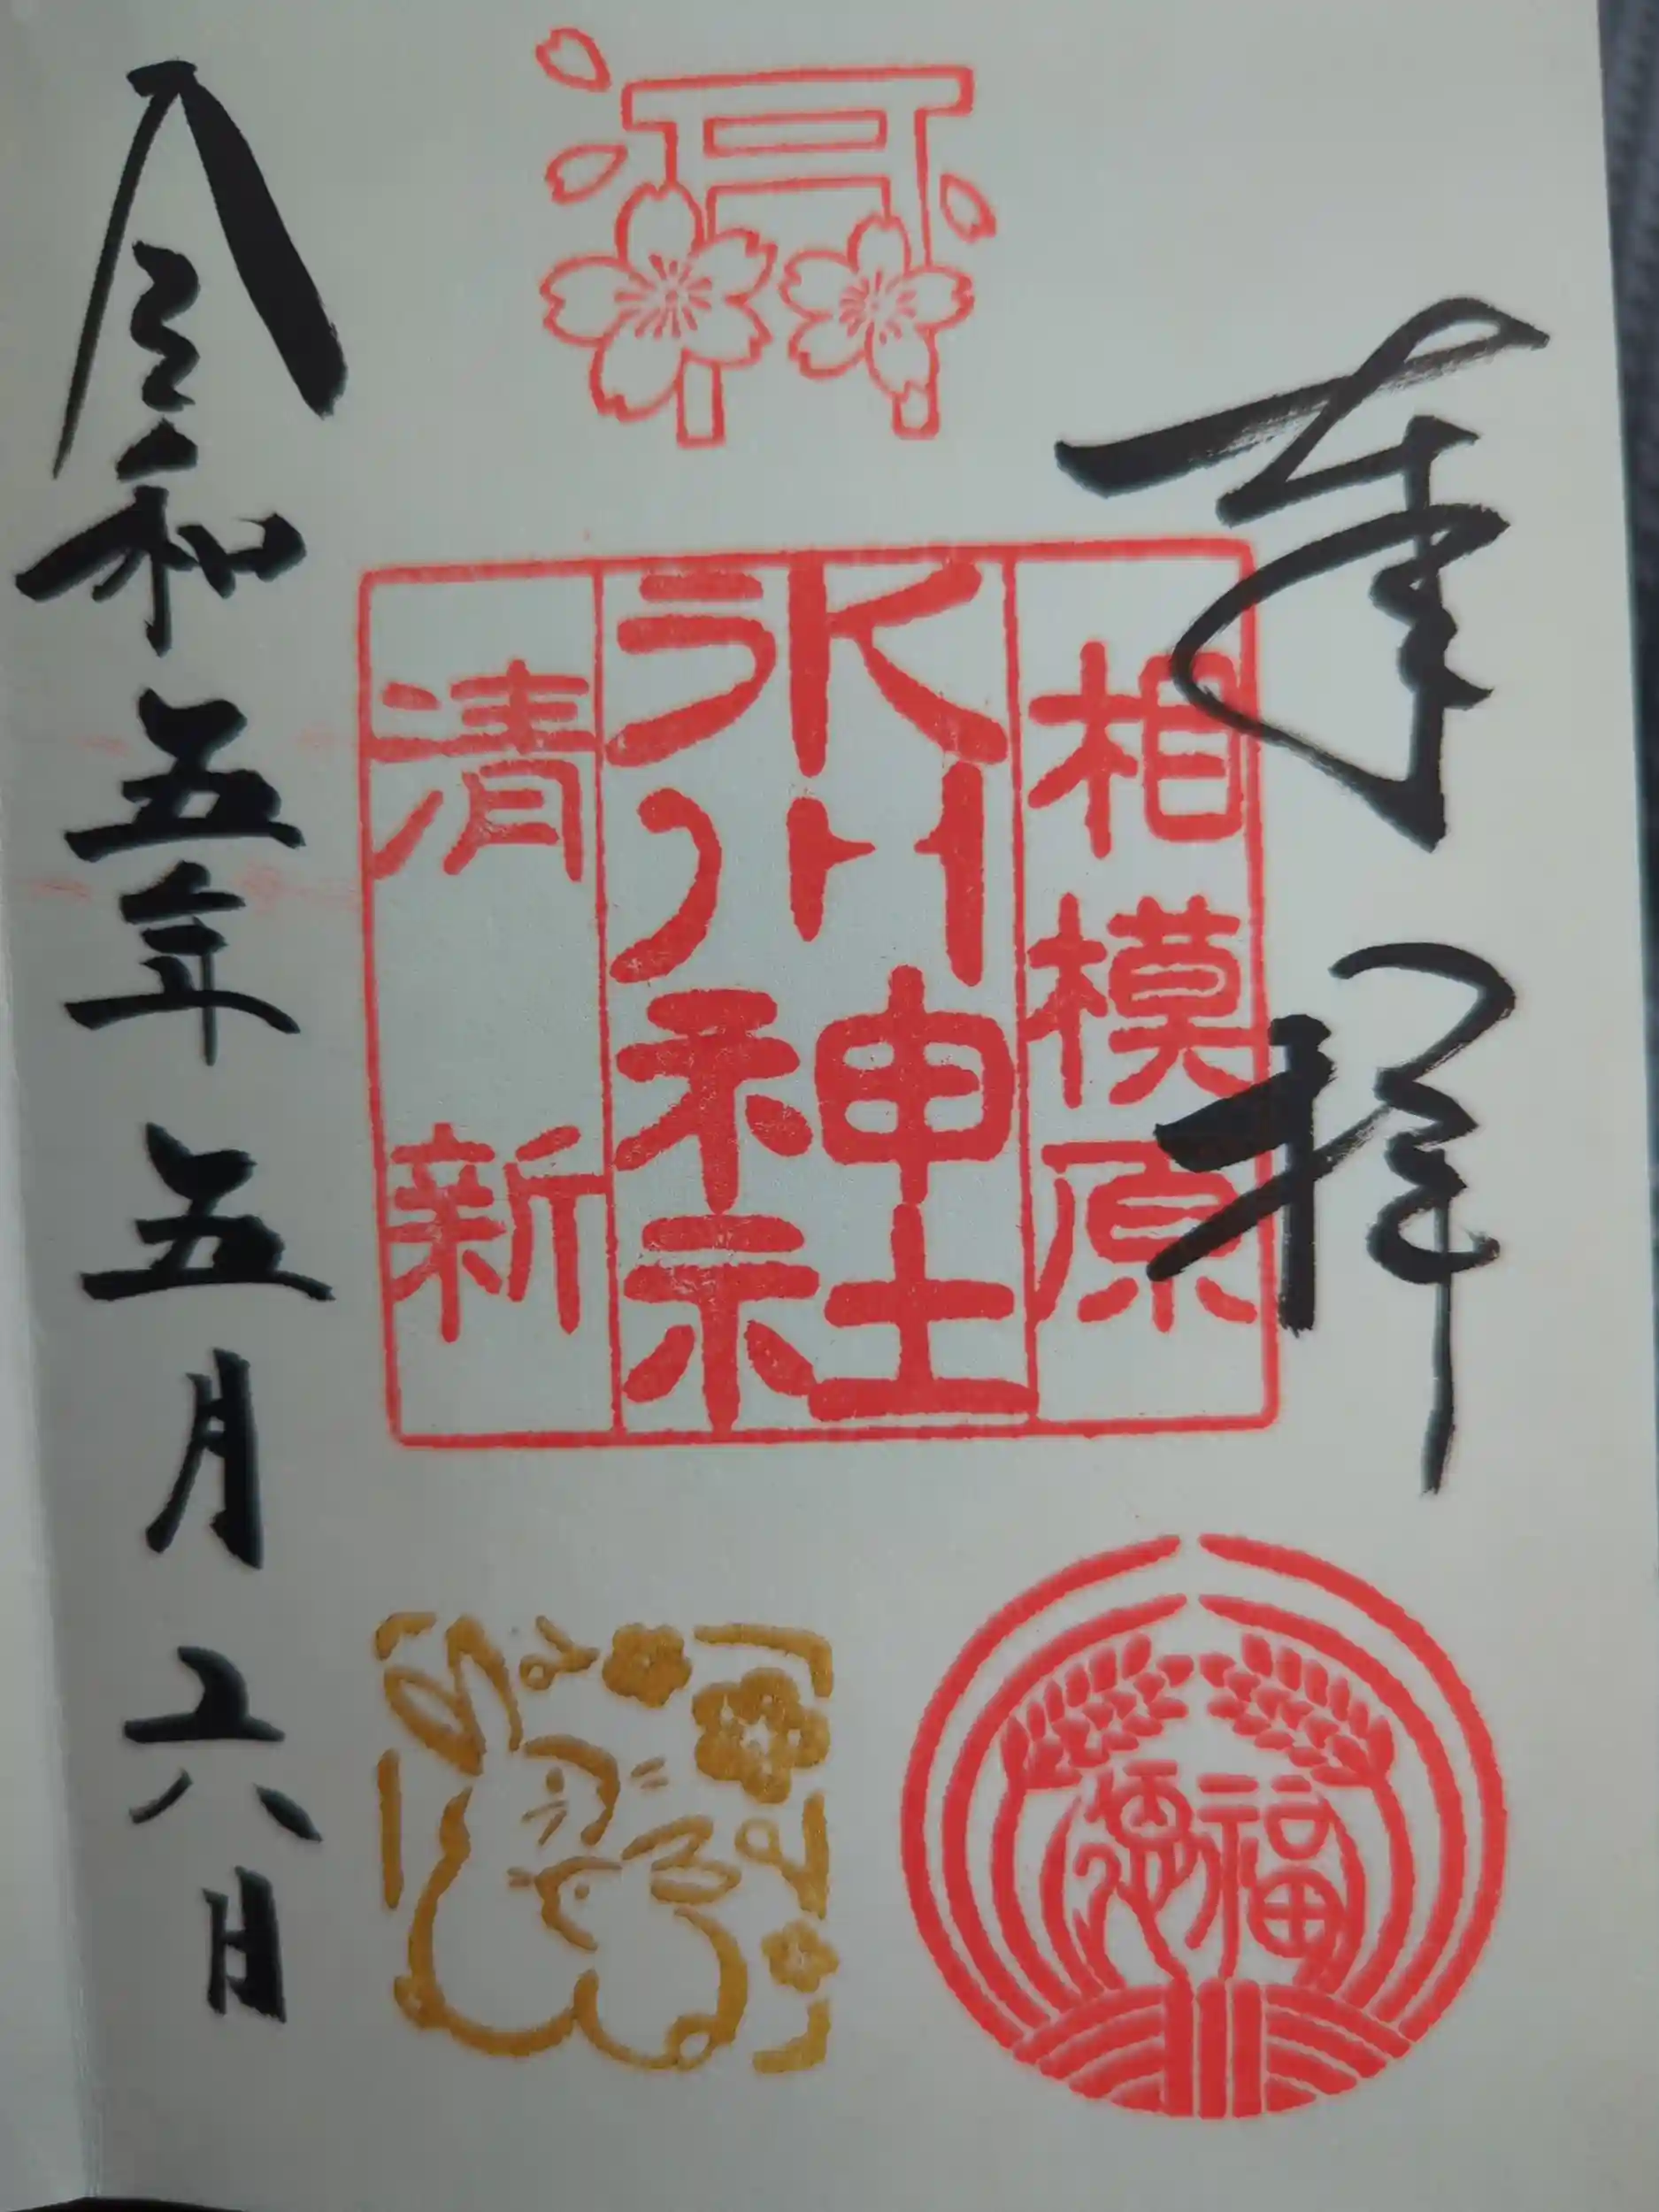 奉拝
相模原
氷川神社
清新
令和五年五月六日
福徳